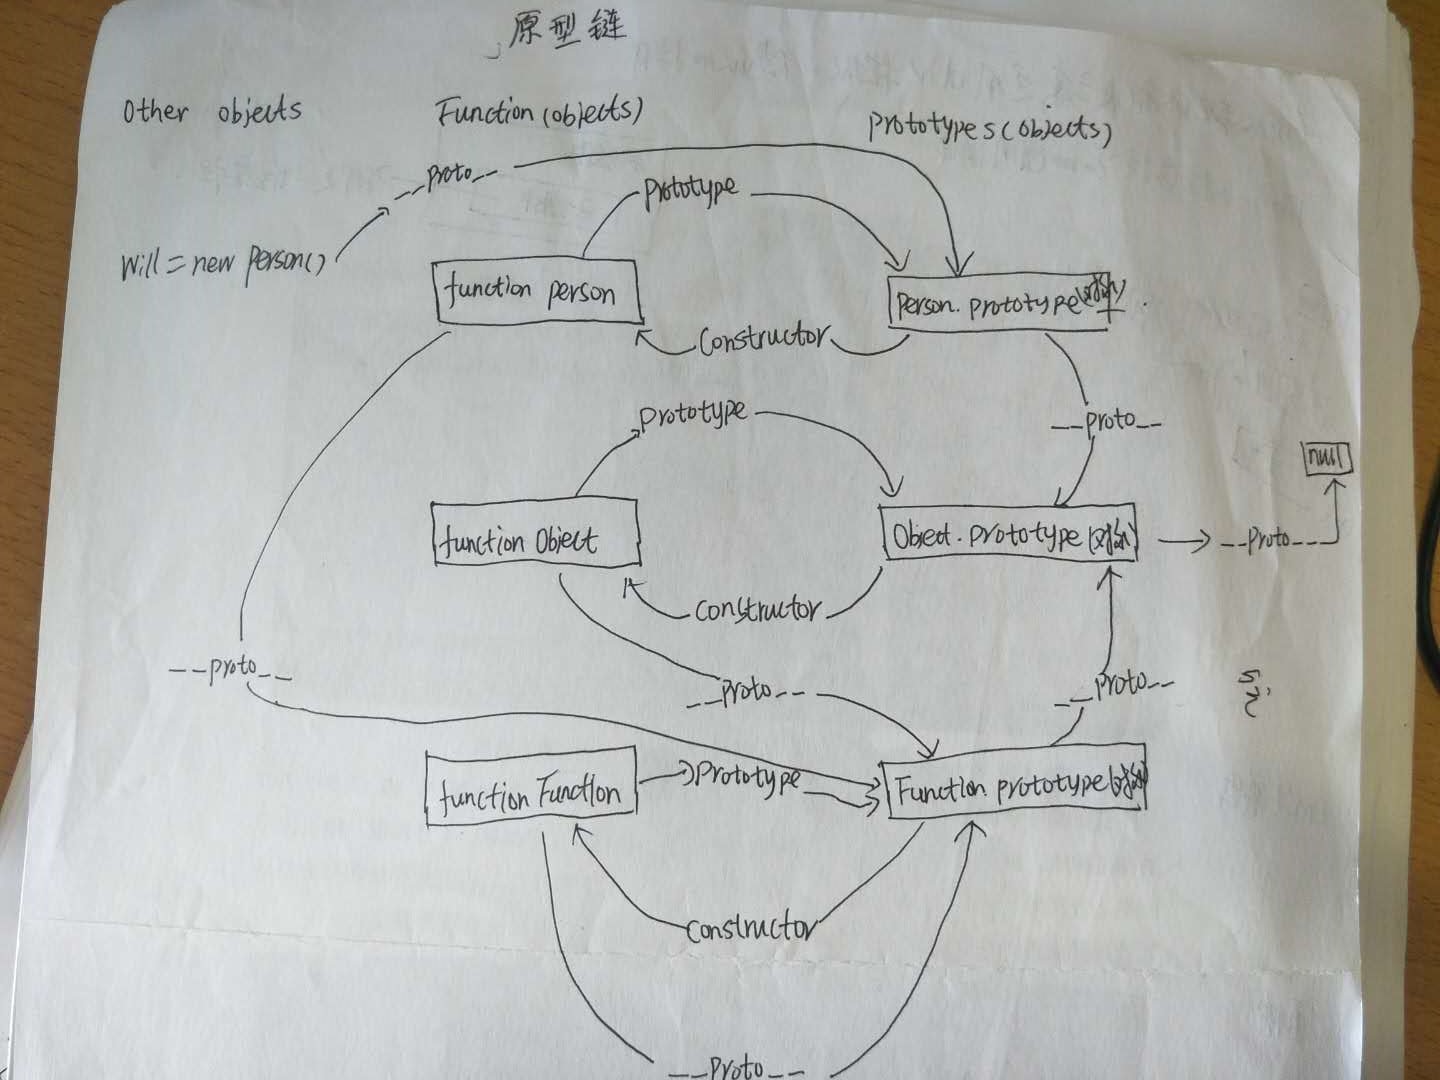 原型链
Other objects
Function (objects)
Prototypes (objects)
__proto__
prototype
Will = new Person()
function person
person.prototype(对象)
Constructor
prototype
__proto__
null
function Object
Object.prototype(对象)
__proto__
constructor
__proto__
__proto__
__proto__
function Function
Prototype
Function prototype(对象)
constructor
__proto__